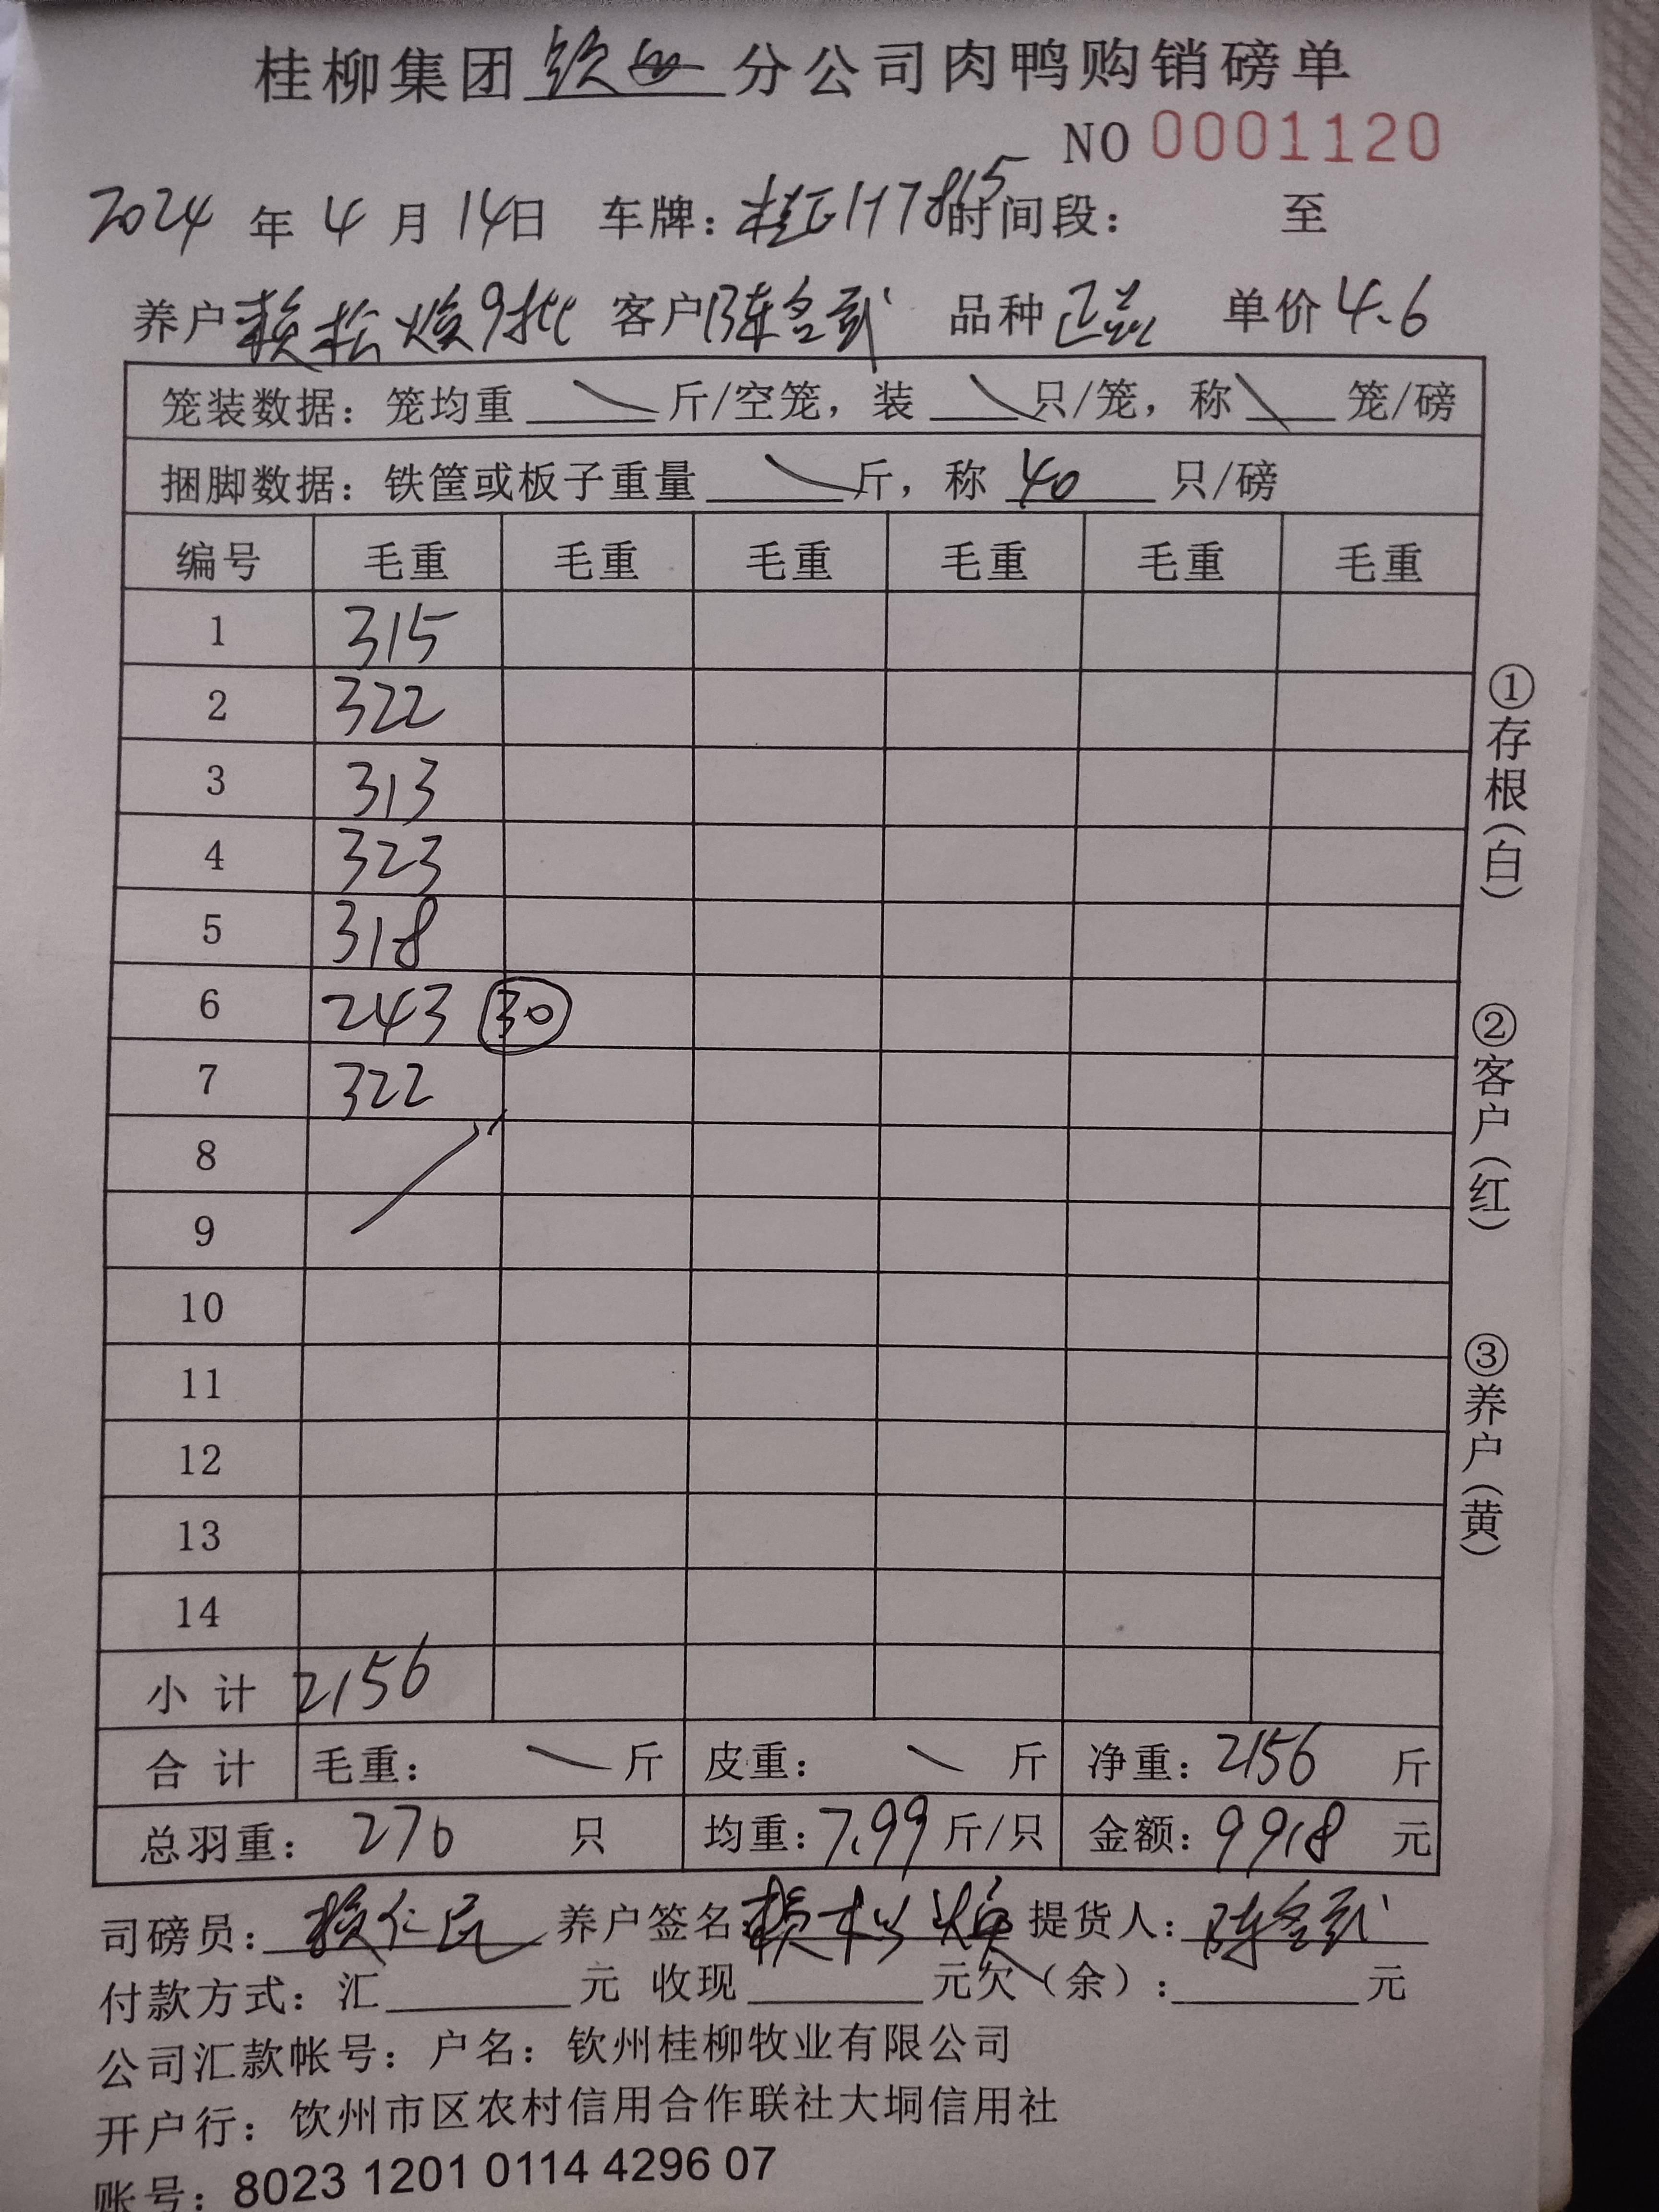 桂柳集团钦州分公司肉鸭购销磅单
NO 0001120
2024 年 4 月 14日 车牌: 桂E H7865 时间段: 至
养户 赖松焕9批 客户 陈名武 品种 正 单价 4.6
笼装数据: 笼均重 斤/空笼, 装 只/笼, 称 笼/磅
捆脚数据: 铁筐或板子重量 斤, 称 40 只/磅
编号 毛重 毛重 毛重 毛重 毛重 毛重
1 315
2 322
3 313
4 323
5 318
6 243 30
7 322
8
9
10
11
12
13
14
小 计 2156
合 计 毛重: 斤 皮重: 斤 净重: 2156 斤
总羽重: 270 只 均重: 7.99 斤/只 金额: 9918 元
司磅员: 赖仁民 养户签名: 赖松焕 提货人: 陈名武
付款方式: 汇 元 收现 元欠(余): 元
公司汇款帐号: 户名: 钦州桂柳牧业有限公司
开户行: 钦州市区农村信用合作联社大垌信用社
账号: 8023 1201 0114 4296 07
①存根(白)
②客户(红)
③养户(黄)